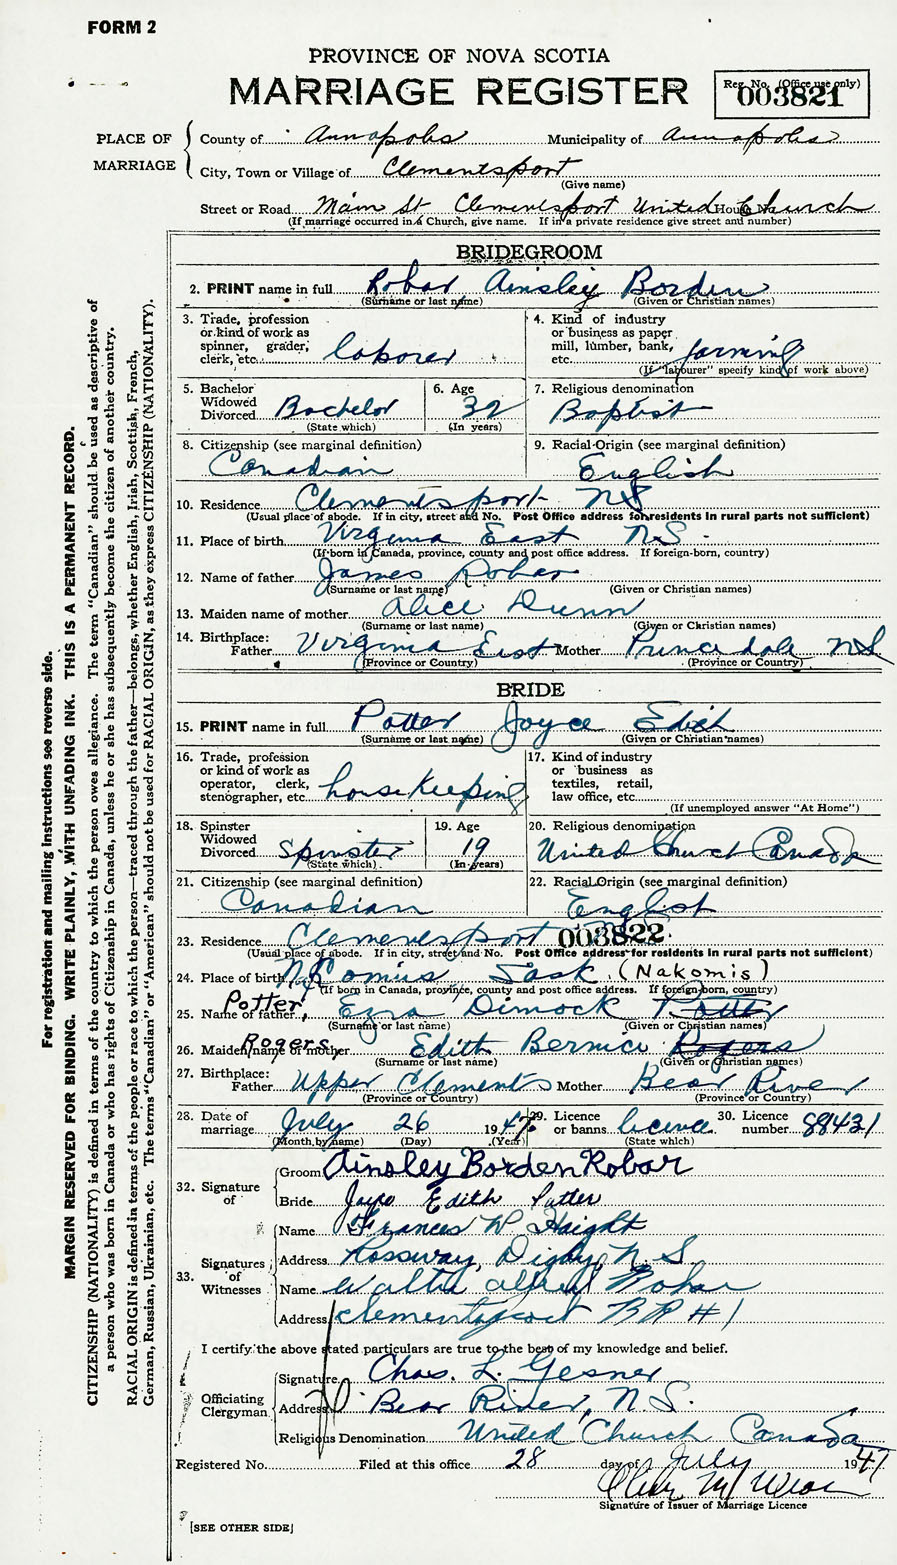 FORM 2
PROVINCE OF NOVA SCOTIA
MARRIAGE REGISTER
Reg. No. (Office use only)
003821
PLACE OF MARRIAGE
County of Annapolis Municipality of Annapolis
City, Town or Village of Clementsport
(Give name)
Street or Road Main St Clementsport United Church House No.
(If marriage occurred in a Church, give name. If in a private residence give street and number)
BRIDEGROOM
2. PRINT name in full Robar Ainsley Borden
(Surname or last name) (Given or Christian names)
3. Trade, profession or kind of work as spinner, grader, clerk, etc. laborer
4. Kind of industry or business as paper mill, lumber, bank, etc. farming
(If "labourer" specify kind of work above)
5. Bachelor Widowed Divorced Bachelor
(State which)
6. Age 32
(In years)
7. Religious denomination
Baptist
8. Citizenship (see marginal definition)
Canadian
9. Racial Origin (see marginal definition)
English
10. Residence Clementsport NS
(Usual place of abode. If in city, street and No. Post Office address for residents in rural parts not sufficient)
11. Place of birth Virginia East N.S.
(If born in Canada, province, county and post office address. If foreign-born, country)
12. Name of father James Robar
(Surname or last name) (Given or Christian names)
13. Maiden name of mother Alice Dunn
(Surname or last name) (Given or Christian names)
14. Birthplace:
Father Virginia East Mother Princedale NS
(Province or Country) (Province or Country)
BRIDE
15. PRINT name in full Potter Joyce Edith
(Surname or last name) (Given or Christian names)
16. Trade, profession or kind of work as operator, clerk, stenographer, etc. housekeeping
17. Kind of industry or business as textiles, retail, law office, etc.
(If unemployed answer "At Home")
18. Spinster Widowed Divorced Spinster
(State which)
19. Age 19
(In years)
20. Religious denomination
United Church Canada
21. Citizenship (see marginal definition)
Canadian
22. Racial Origin (see marginal definition)
English
23. Residence Clementsport 003822
(Usual place of abode. If in city, street and No. Post Office address for residents in rural parts not sufficient)
24. Place of birth Sask. (Nakomis)
(If born in Canada, province, county and post office address. If foreign-born, country)
25. Name of father Potter, Ezra Dimock Potter
(Surname or last name) (Given or Christian names)
26. Maiden name of mother Rogers, Edith Bernice Rogers
(Surname or last name) (Given or Christian names)
27. Birthplace:
Father Upper Clements Mother Bear River
(Province or Country) (Province or Country)
28. Date of marriage July 26 1947
(Month by name) (Day) (Year)
29. Licence or banns licence
(State which)
30. Licence number 88431
32. Signature of
Groom Ainsley Borden Robar
Bride Joyce Edith Potter
33. Signatures of Witnesses
Name Frances W Haight
Address Rossway, Digby, N S
Name Walter Alfred Robar
Address Clementsport RR #1
I certify the above stated particulars are true to the best of my knowledge and belief.
Officiating Clergyman
Signature Chas. L. Gesner
Address Bear River, N.S.
Religious Denomination United Church Canada
Registered No. Filed at this office 28 day of July 1947
Signature of Issuer of Marriage Licence
[SEE OTHER SIDE]
For registration and mailing instructions see reverse side.
MARGIN RESERVED FOR BINDING. WRITE PLAINLY, WITH UNFADING INK. THIS IS A PERMANENT RECORD.
CITIZENSHIP (NATIONALITY) is defined in terms of the country to which the person owes allegiance. The term "Canadian" should be used as descriptive of
a person who was born in Canada or who has rights of Citizenship in Canada, unless he or she has subsequently become the citizen of another country.
RACIAL ORIGIN is defined in terms of the people or race to which the person—traced through the father—belongs, whether English, Irish, Scottish, French,
German, Russian, Ukrainian, etc. The terms "Canadian" or "American" should not be used for RACIAL ORIGIN, as they express CITIZENSHIP (NATIONALITY).